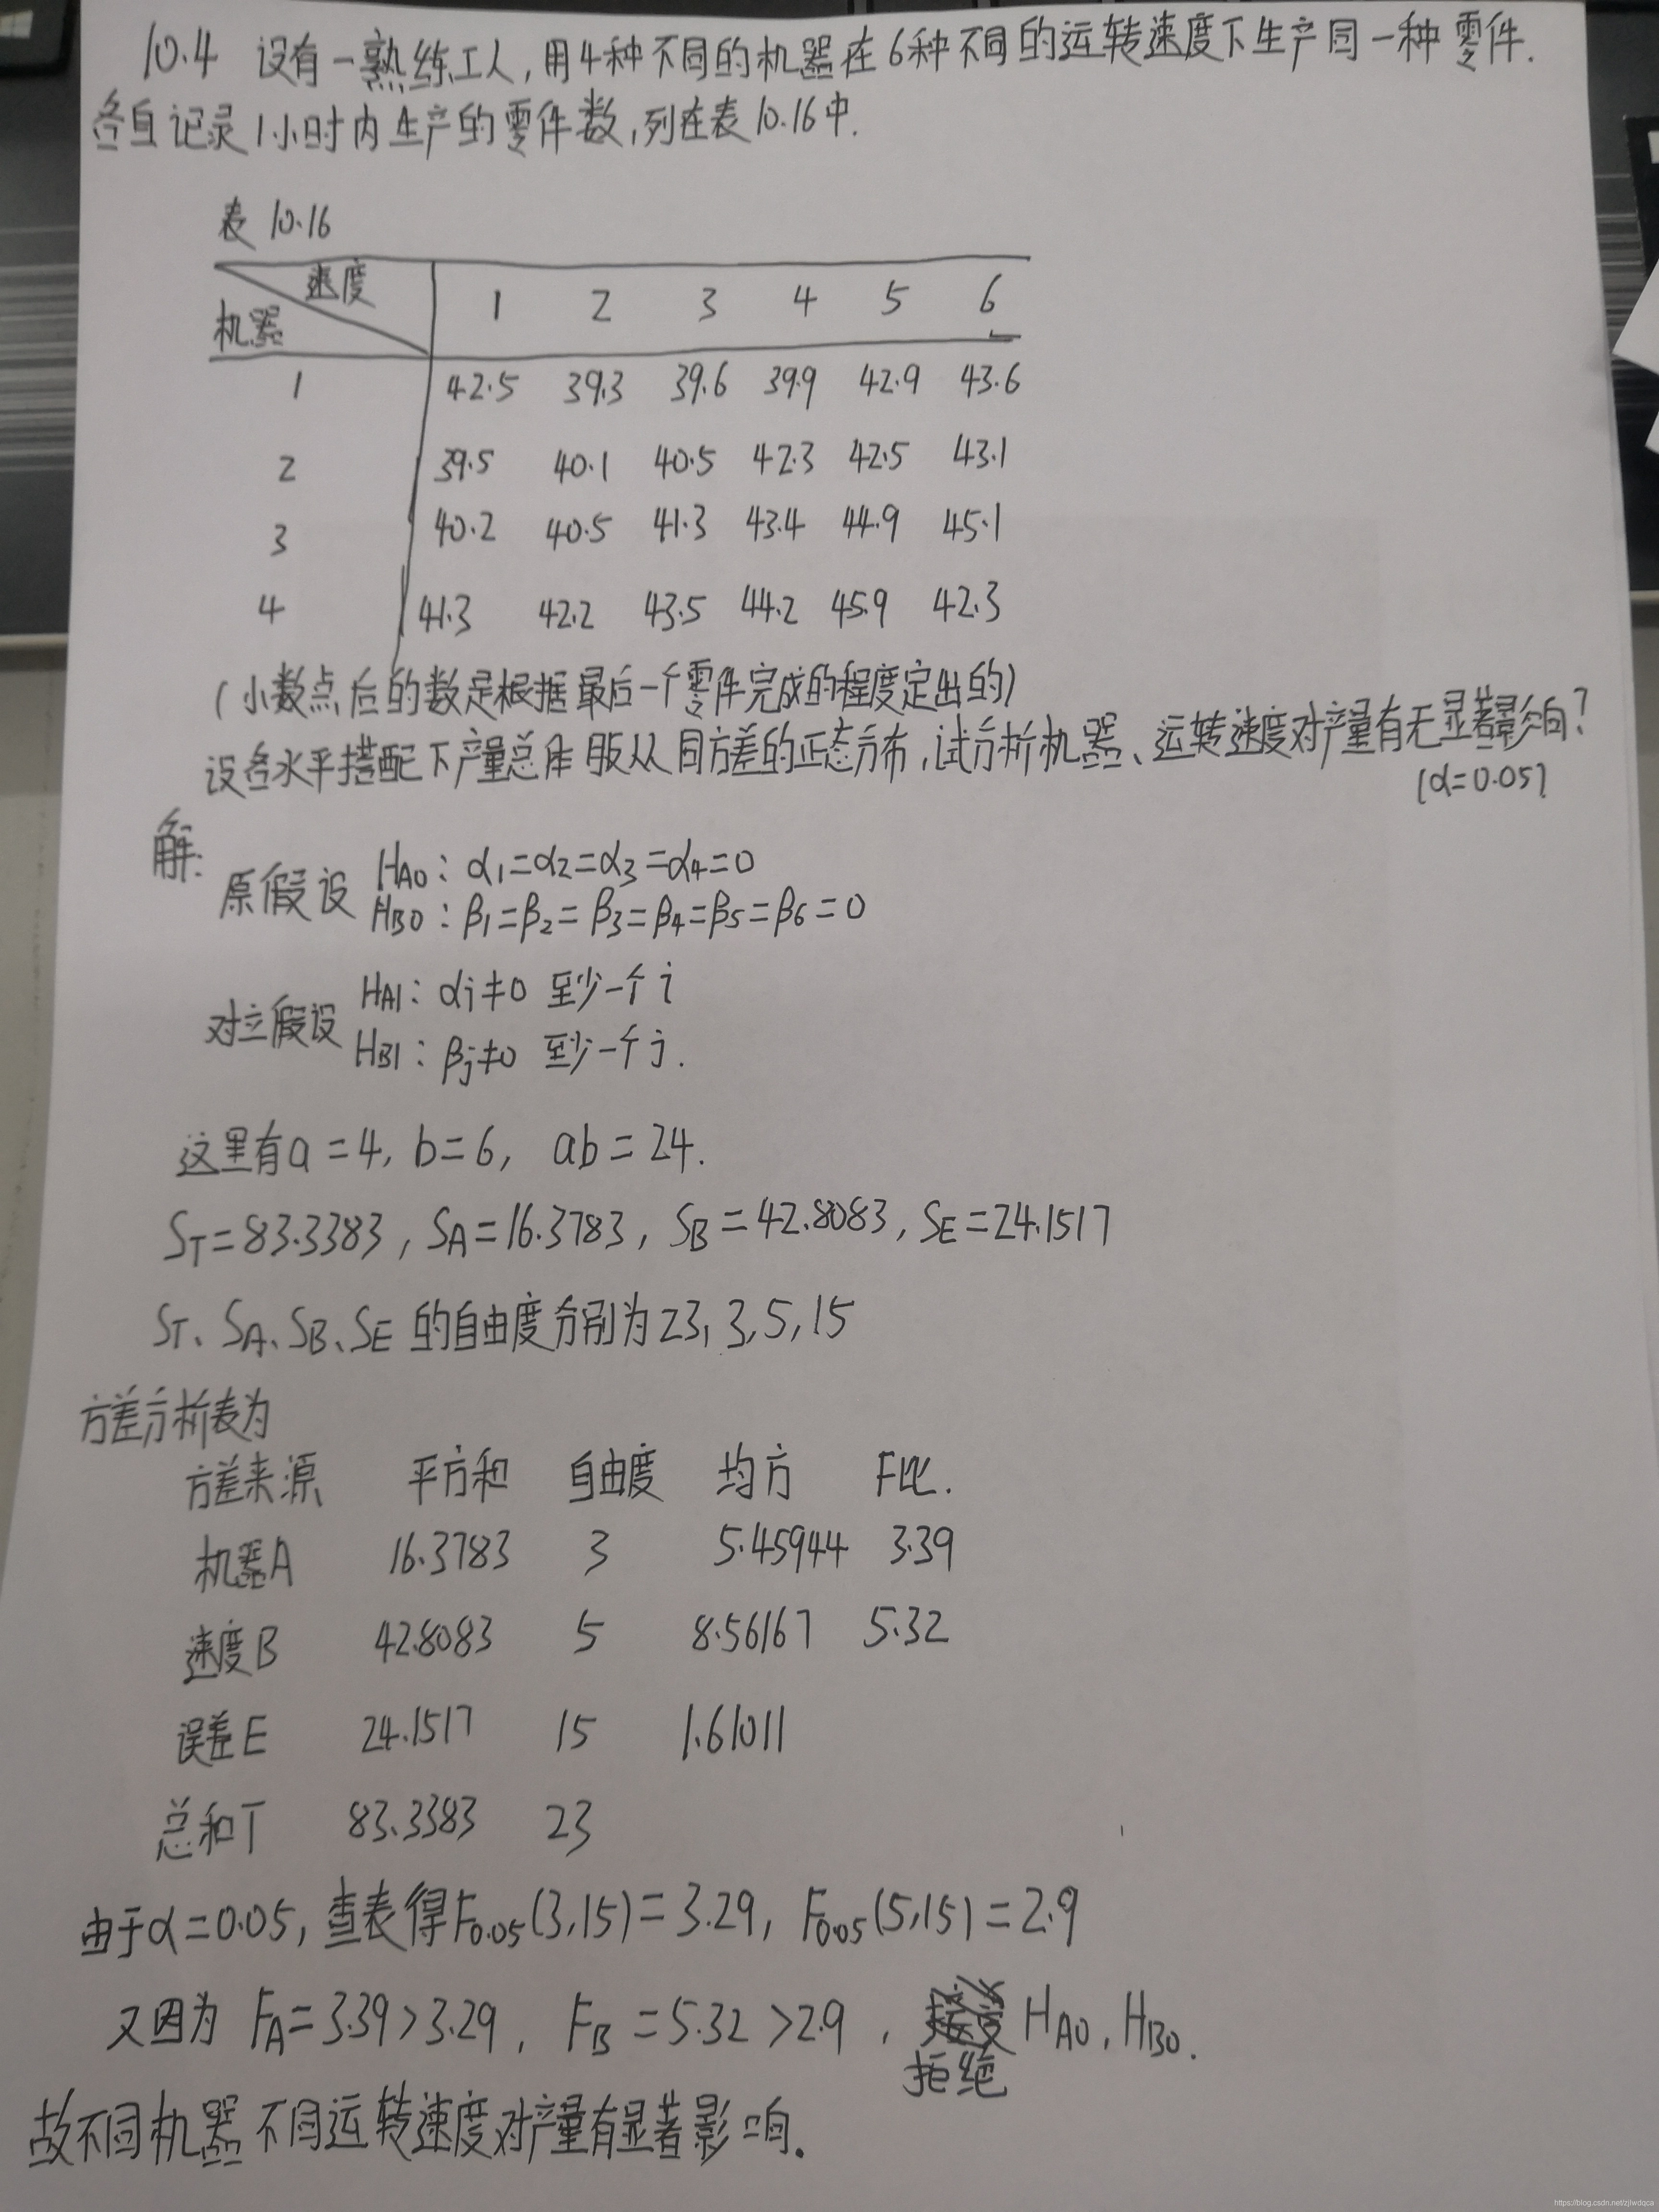 10.4 设有一熟练工人,用4种不同的机器在6种不同的运转速度下生产同一种零件.
各自记录1小时内生产的零件数,列在表10.16中.
表10.16
速度 1 2 3 4 5 6
机器
1 42.5 39.3 39.6 39.9 42.9 43.6
2 39.5 40.1 40.5 42.3 42.5 43.1
3 40.2 40.5 41.3 43.4 44.9 45.1
4 41.3 42.2 43.5 44.2 45.9 42.3
(小数点后的数是根据最后一个零件完成的程度定出的)
设各水平搭配下产量总体服从同方差的正态分布,试分析机器、运转速度对产量有无显著影响?
(α=0.05)
解:
原假设 HA0: α1=α2=α3=α4=0
HB0: β1=β2=β3=β4=β5=β6=0
对立假设 HA1: αi≠0 至少一个i
HB1: βj≠0 至少一个j.
这里有a=4, b=6, ab=24.
ST=83.3383, SA=16.3783, SB=42.8083, SE=24.1517
ST、SA、SB、SE的自由度分别为23,3,5,15
方差分析表为
方差来源 平方和 自由度 均方 F比.
机器A 16.3783 3 5.45944 3.39
速度B 42.8083 5 8.56167 5.32
误差E 24.1517 15 1.61011
总和T 83.3383 23
由于α=0.05,查表得F0.05(3,15)=3.29, F0.05(5,15)=2.9
又因为 FA=3.39>3.29, FB=5.32>2.9, 拒绝 HA0, HB0.
故不同机器不同运转速度对产量有显著影响.
https://blog.csdn.net/zjlwdqca